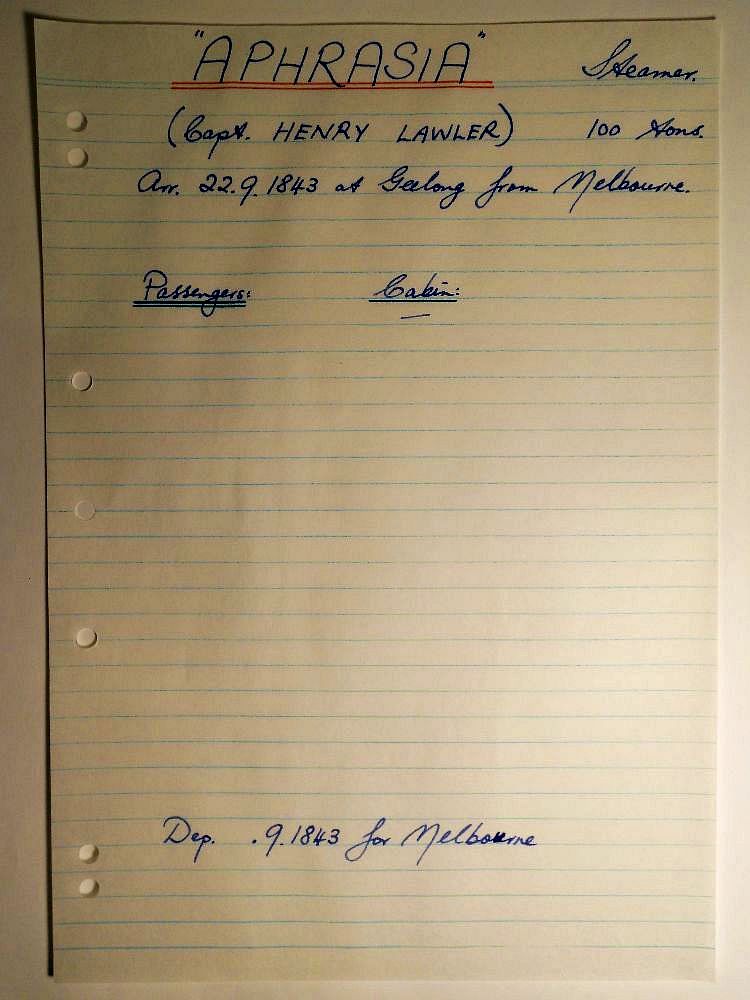 "APHRASIA" Steamer.
(Capt. HENRY LAWLER) 100 tons.
Arr. 22.9.1843 at Geelong from Melbourne.
Passengers: Cabin:
—
Dep. .9.1843 for Melbourne